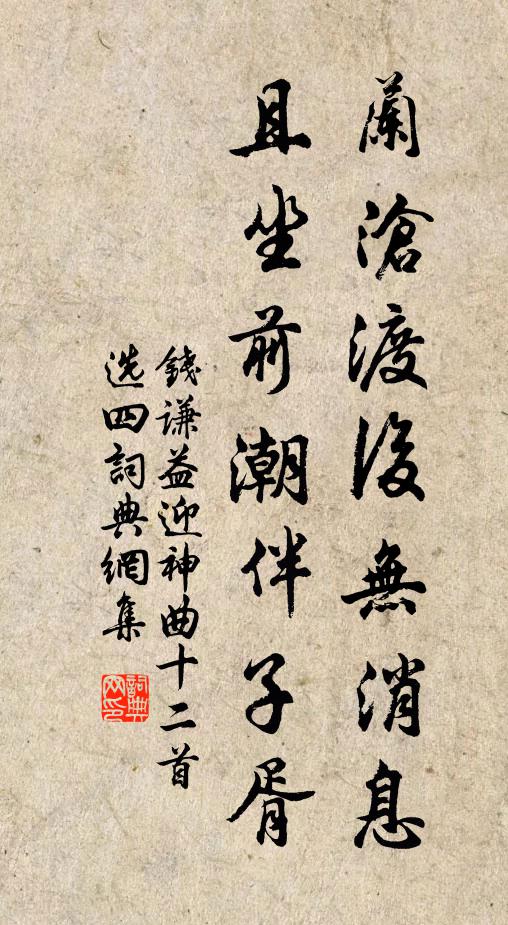 蘭滄渡後無消息
且坐前潮伴子胥
錢謙益迎神曲十二首
选四詞典網集
詞典网印